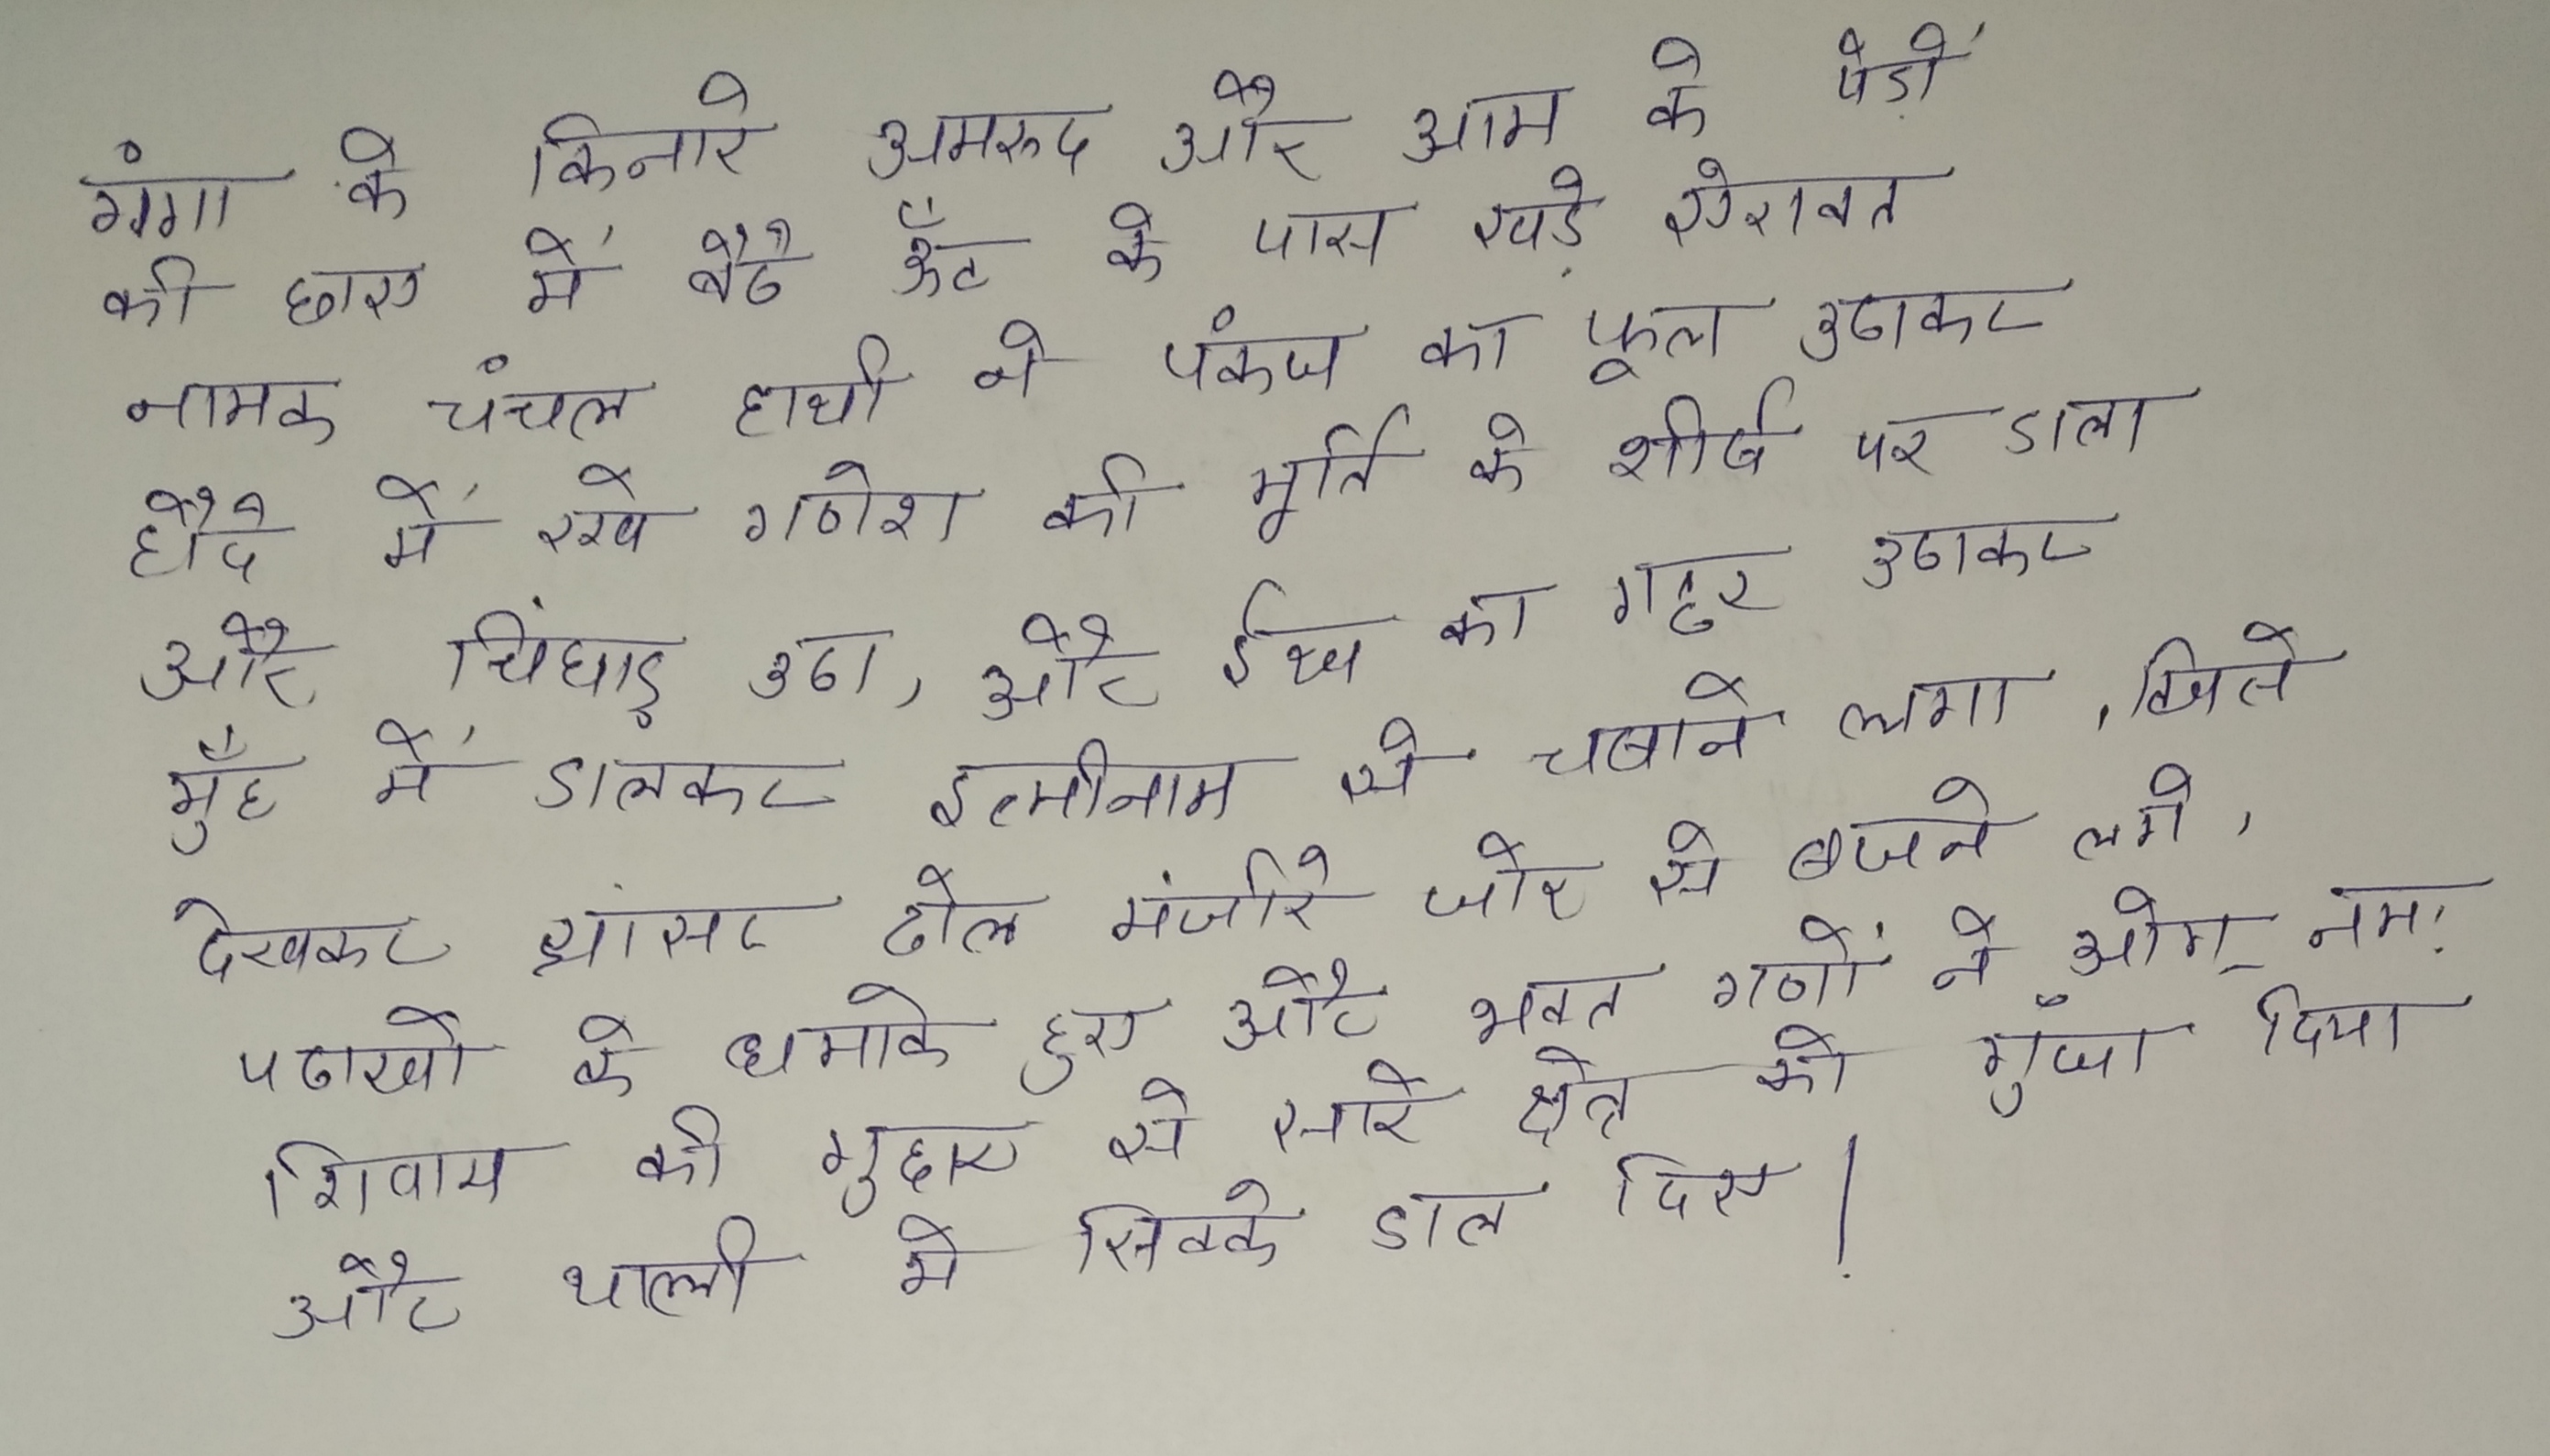 गंगा के किनारे अमरुद और आम के पेड़ों
की छाए में बैठै ऊँट के पास खड़े ऐरावत
नामक चंचल हाथी ने पंकज का फूल उठाकर
हौदे में रखे गणेश की मूर्ति के शीर्ष पर डाला
और चिंघाड़ उठा, और ईख का गट्ठर उठाकर
मुँह में डालकर इत्मीनाम से चबाने लगा, जिसे
देखकर झांसर ढोल मंजीरे जोर से बजने लगे,
पठाखों के धमाके हुए और भक्त गणों ने ओम् नमः
शिवाय की गुहार से सारे क्षेत्र को गुंजा दिया
और थाली मे सिक्के डाल दिए।